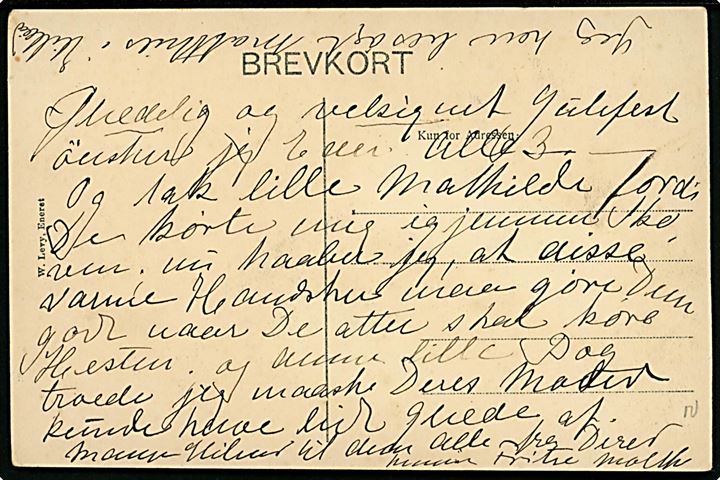 Jeg har besøgt Matthies i
BREVKORT
Glædelig og velsignet Julefest
Kun for Adressen:
önsker jeg Eder alle 3.
Og tak lille Mathilde fordi
W. Levy, Eneret
De körte mig igjennem Sko
ven. nu haaber jeg, at disse
varme Handsker maa göre Dem
godt naar De atter skal köre
Hesten. og denne lille Dog
troede jeg maaske Deres Moder
kunde have lidt glæde af.
Mange Hilsner til dem alle fra Deres